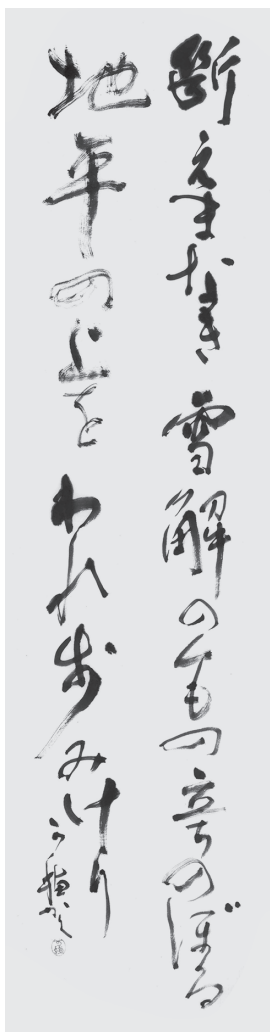 断えまなき雪解のもの音のぼる
地平の上をわれ歩みけり